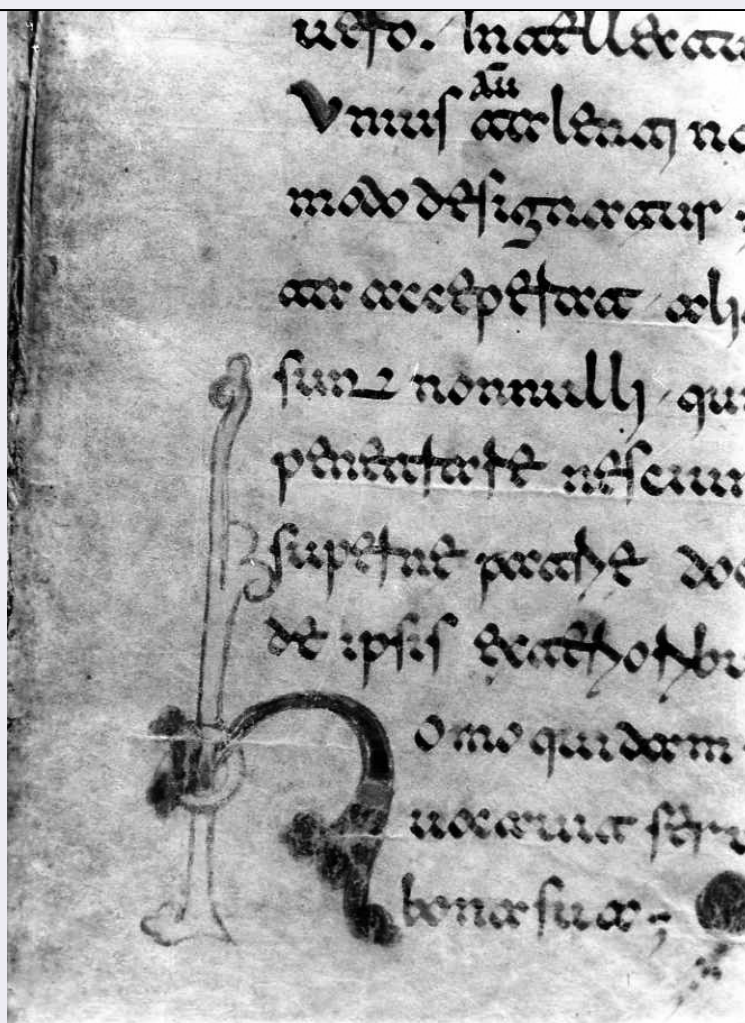 uero. Intellectu
Vnius aū talenti no
modo designatur ;
ta acceperat . ali
sunt nonnulli . qui
penetrare nesciun
superne patrie doc
de ipsis exterioribu
Homo quidam
uocauit seru
bona sua ;